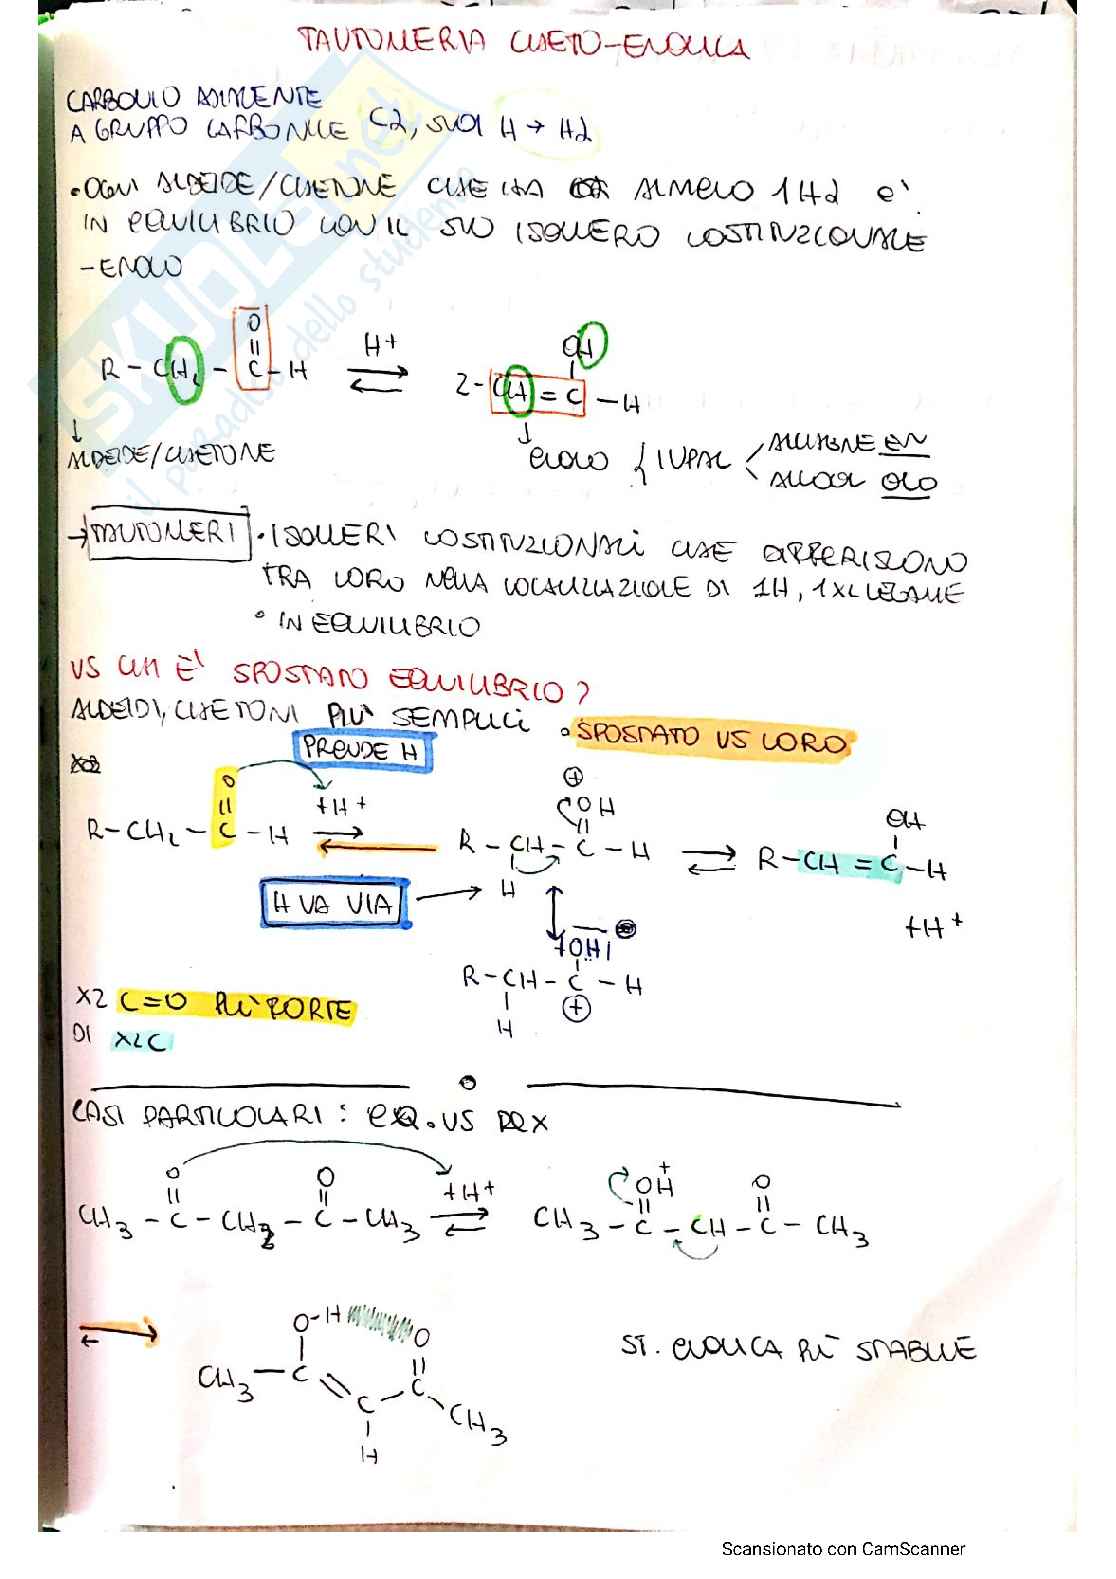 TAUTOMERIA CHETO-ENOLICA
CARBONIO ADIACENTE
A GRUPPO CARBONILE Cα, SUOI H → Hα
• OGNI ALDEIDE/CHETONE CHE HA ALMENO 1Hα E'
IN EQUILIBRIO CON IL SUO ISOMERO COSTITUZIONALE
- ENOLO
O
||
R - CH₂ - C - H
H+
⇌
OH
|
R - CH = C - H
↓
ALDEIDE/CHETONE
↓
ENOLO { IUPAC < ALCHENE EN
ALCOOL OLO
→ TAUTOMERI • ISOMERI COSTITUZIONALI CHE DIFFERISCONO
TRA LORO NELLA LOCALIZZAZIONE DI 1H, 1 X2 LEGAME
• IN EQUILIBRIO
VS CHI E' SPOSTATO EQUILIBRIO?
ALDEIDI, CHETONI PIU' SEMPLICI • SPOSTATO VS LORO
PRENDE H
O
||
R-CH₂ - C - H
+H+
⇌
⊕
OH
||
R - CH - C - H
|
H
⇌
OH
|
R-CH = C-H
+H+
H VA VIA →
↕
|OH|
⊖
R-CH-C-H
|
H
⊕
X2 C=O PIU' FORTE
DI X2C
CASI PARTICOLARI: EQ. VS DX
O
||
O
||
CH3 - C - CH2 - C - CH3
+H+
⇌
OH+
||
O
||
CH3 - C - CH - C - CH3
⇌
O-H
O
CH3 - C
C
C
CH3
H
ST. ENOLICA PIU' STABILE
Scansionato con CamScanner
SKUOLA.net
il paradiso dello studente